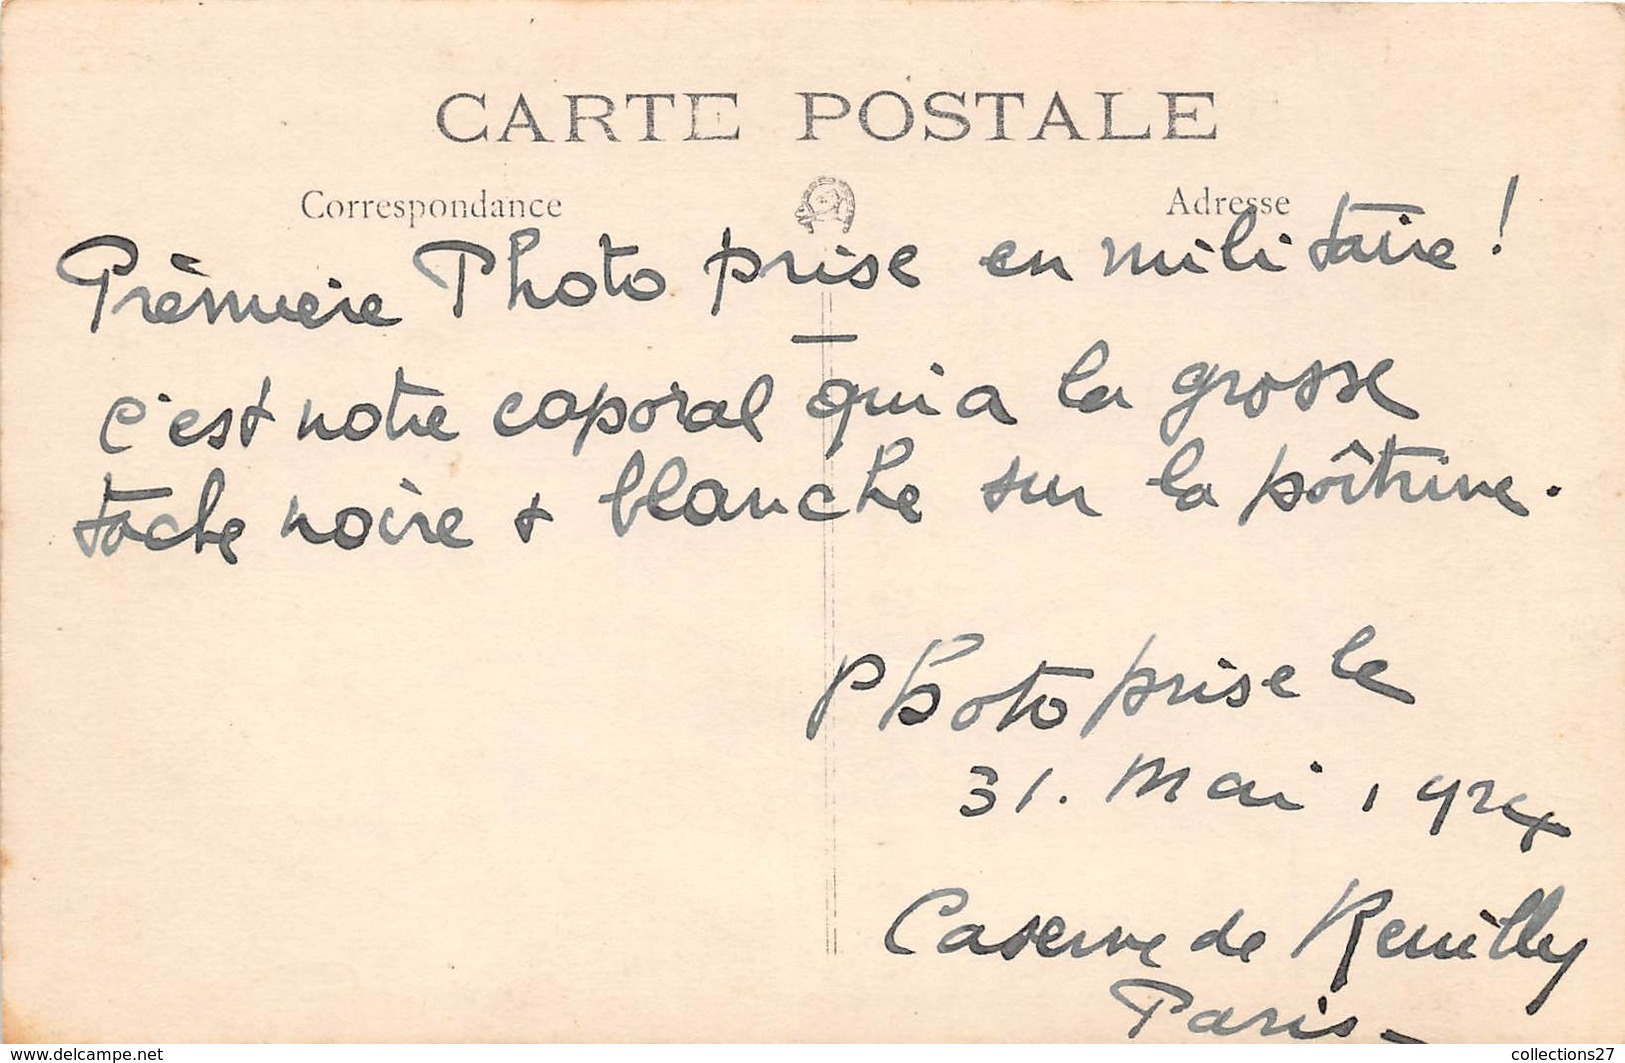 CARTE POSTALE
Correspondance
Adresse
Prèmiere Photo prise en militaire !
c'est notre caporal qui a la grosse
tache noire & blanche sur la poîtrine.
Photo prise le
31. Mai 1924
Caserne de Reuilly
Paris_
delcampe.net
collections27